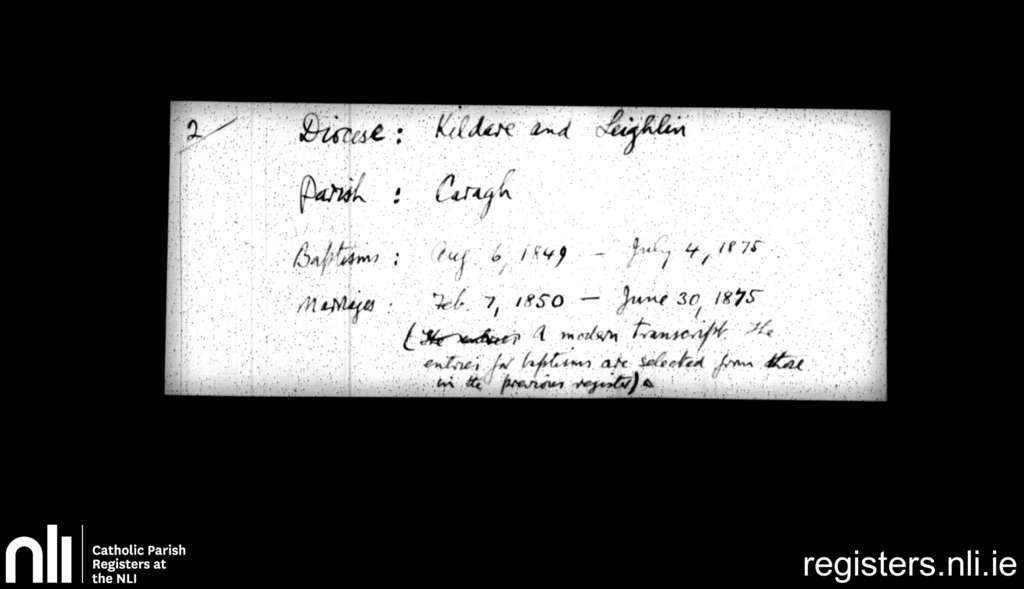 2/
Diocese: Kildare and Leighlin
Parish: Caragh
Baptisms: Aug 6, 1849 – July 4, 1875
Marriages: Feb. 7, 1850 – June 30, 1875
(The entries A modern transcript. The
entries for baptisms are selected from those
in the previous register)
nli
Catholic Parish
Registers at
the NLI
registers.nli.ie